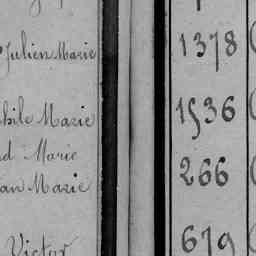 Julien Marie 1378
Marie 1536
Marie
266
an Marie
Victor 679